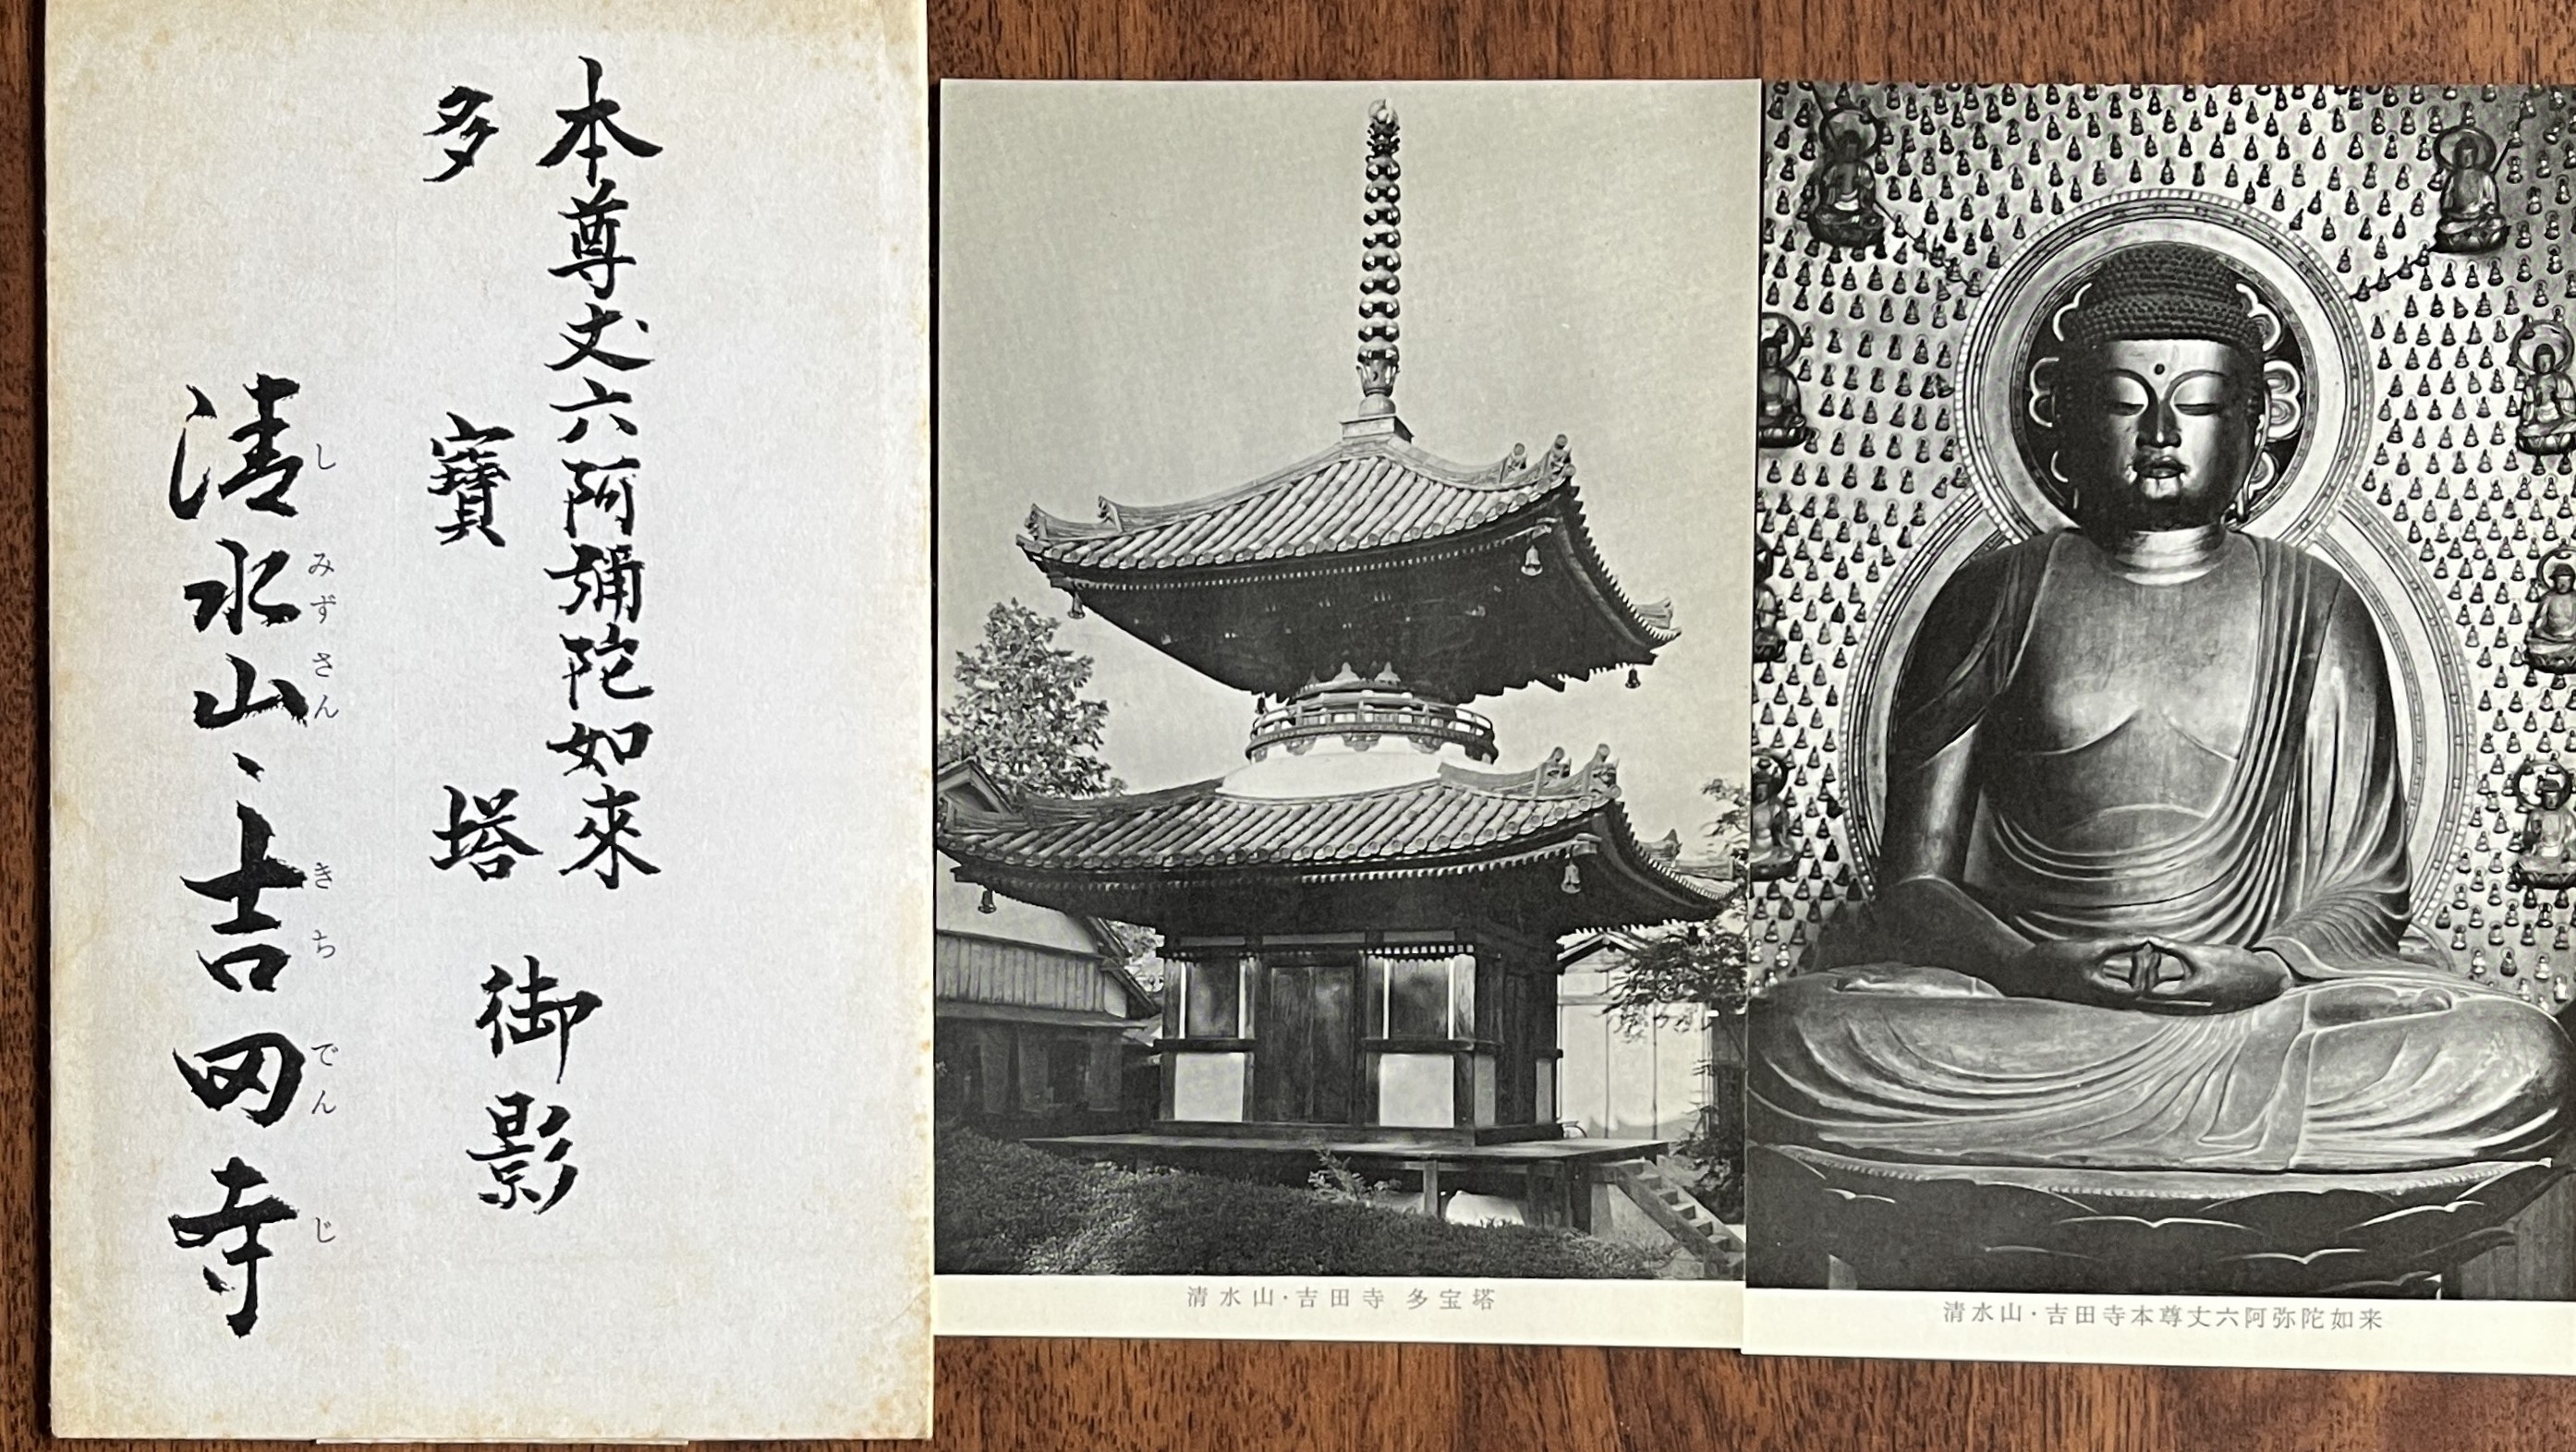 本尊丈六阿彌陀如來
多寶塔
御影
清水山、吉田寺
しみずさん きちでんじ
清水山・吉田寺 多宝塔
清水山・吉田寺本尊丈六阿弥陀如来